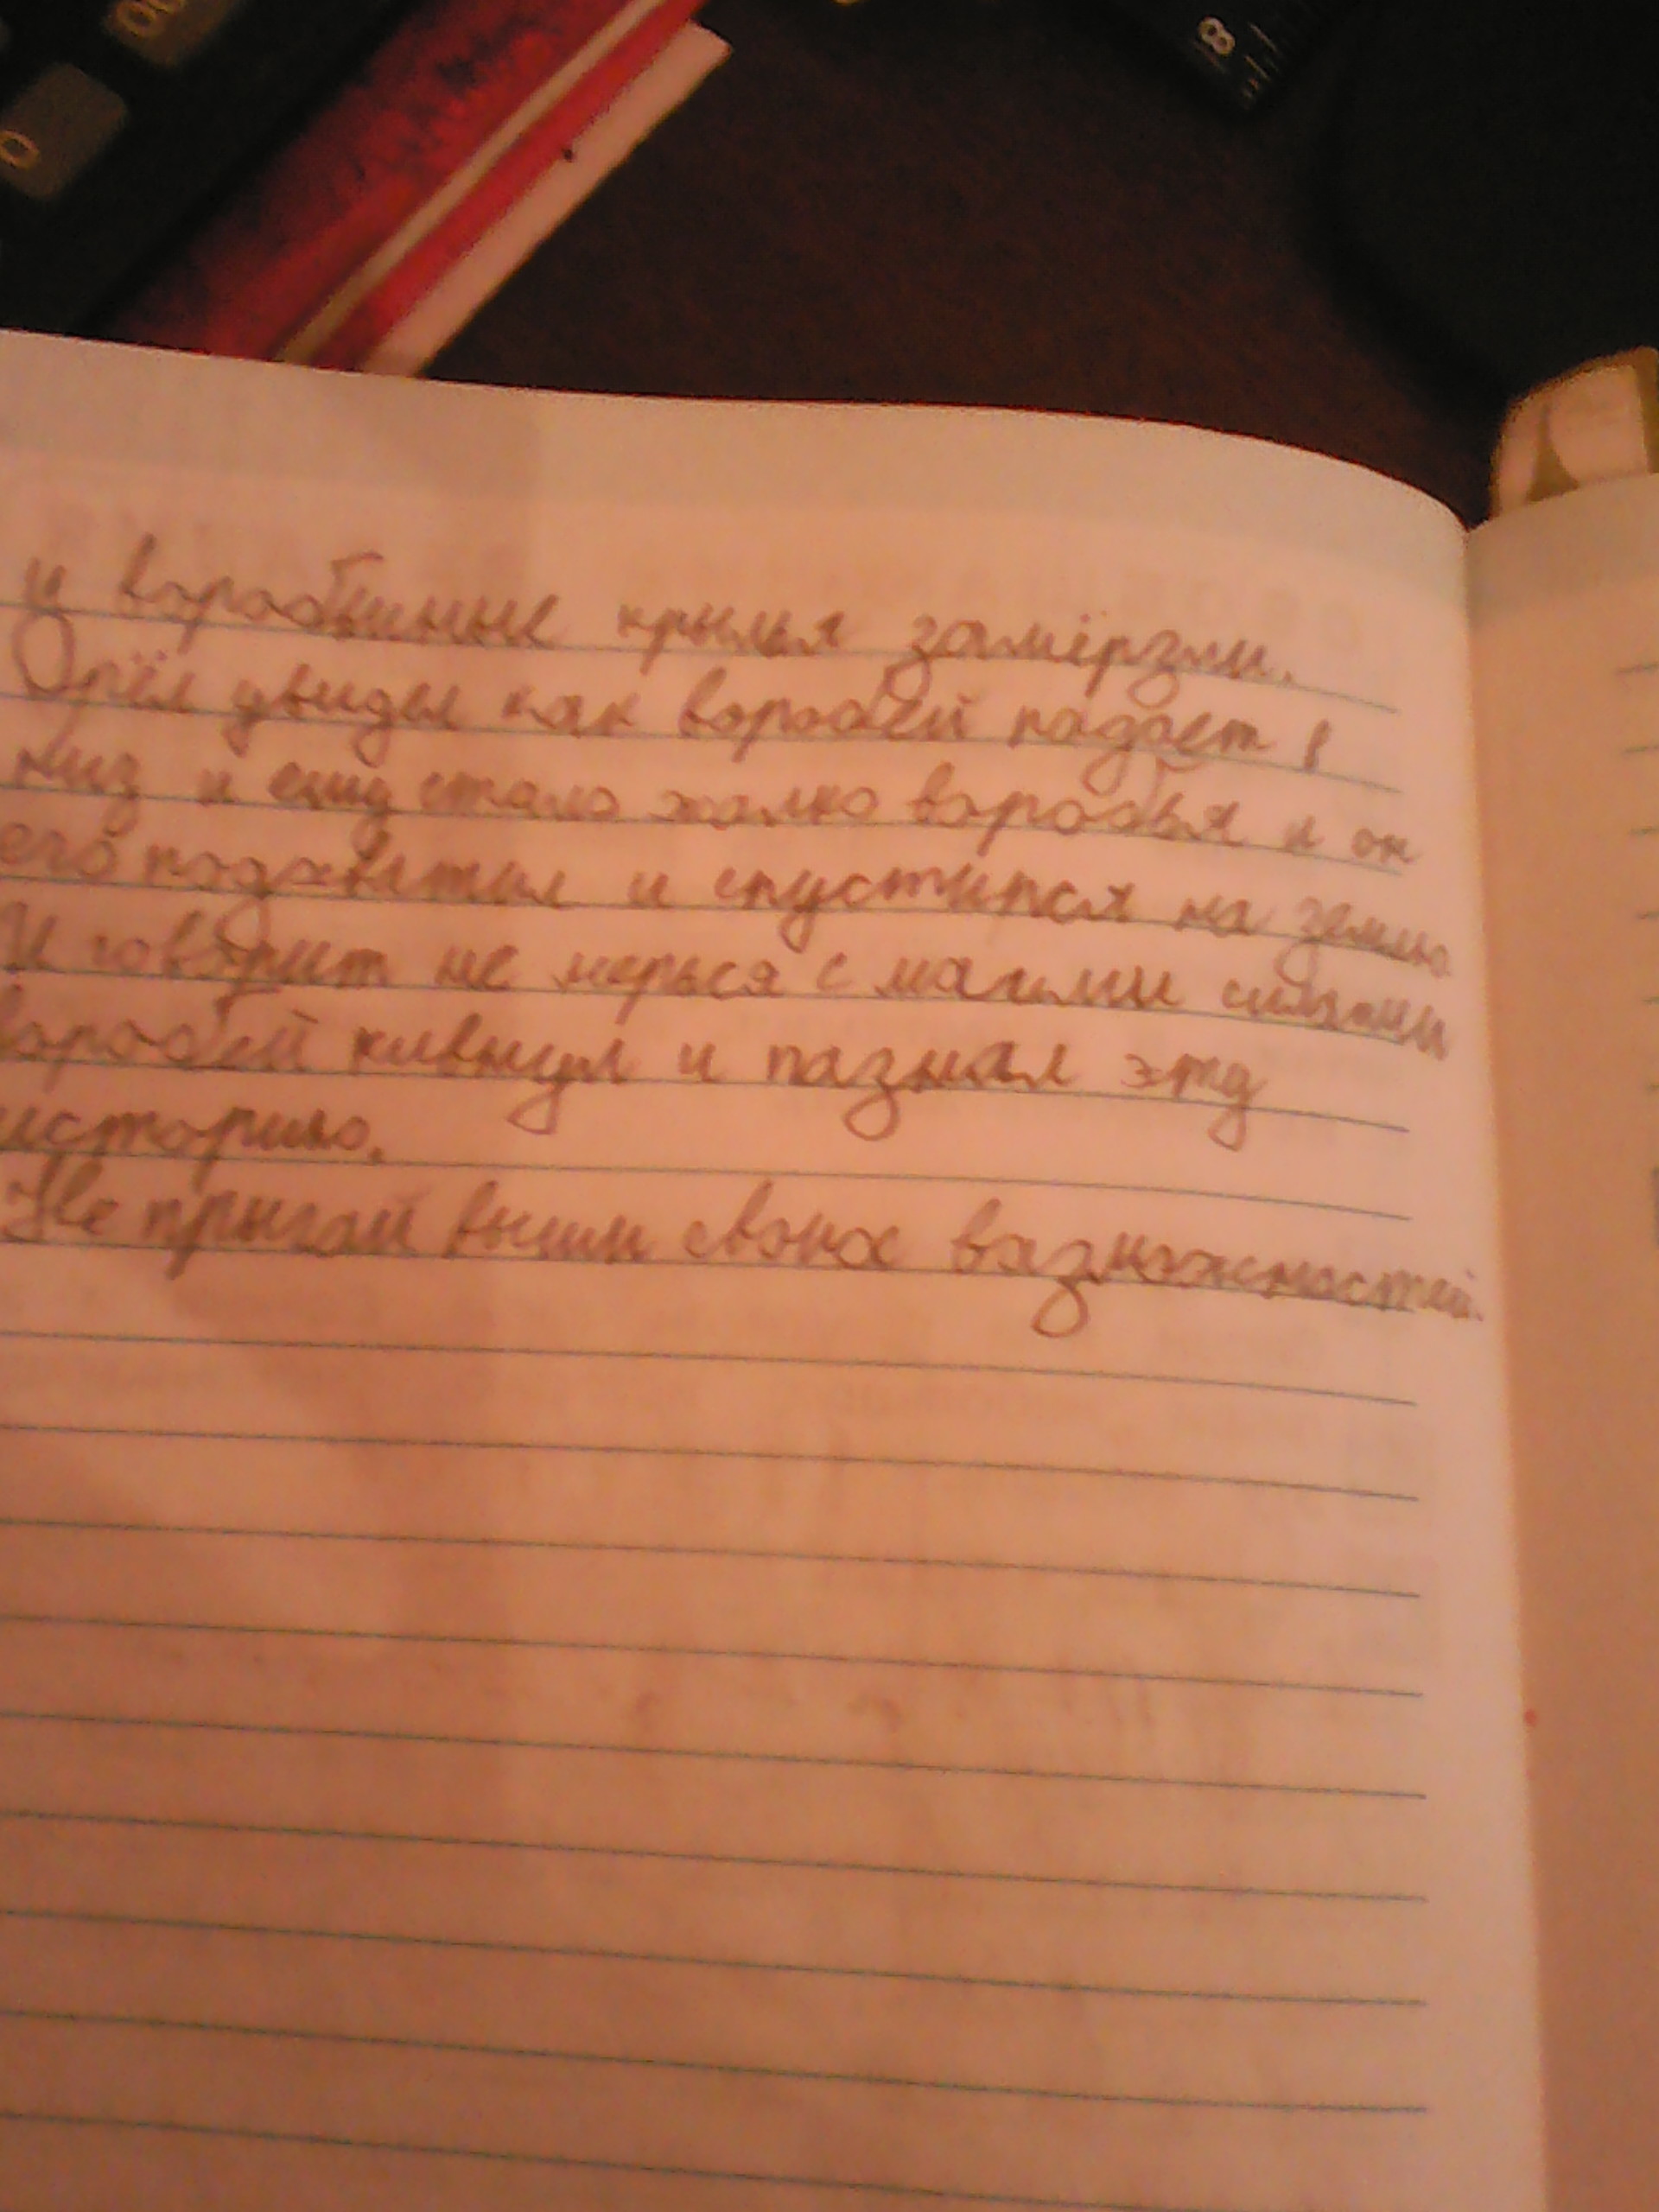 00
0
8
и воробьиные крылья замёрзли.
Орёл увидел как воробей падает
низ и ему стало жалко воробья и он
его подхватил и спустился на землю
И говорит не мерься с маими силами
воробей кивнул и пазнал эту
историю.
Не прыгай выши своих вазможностей.